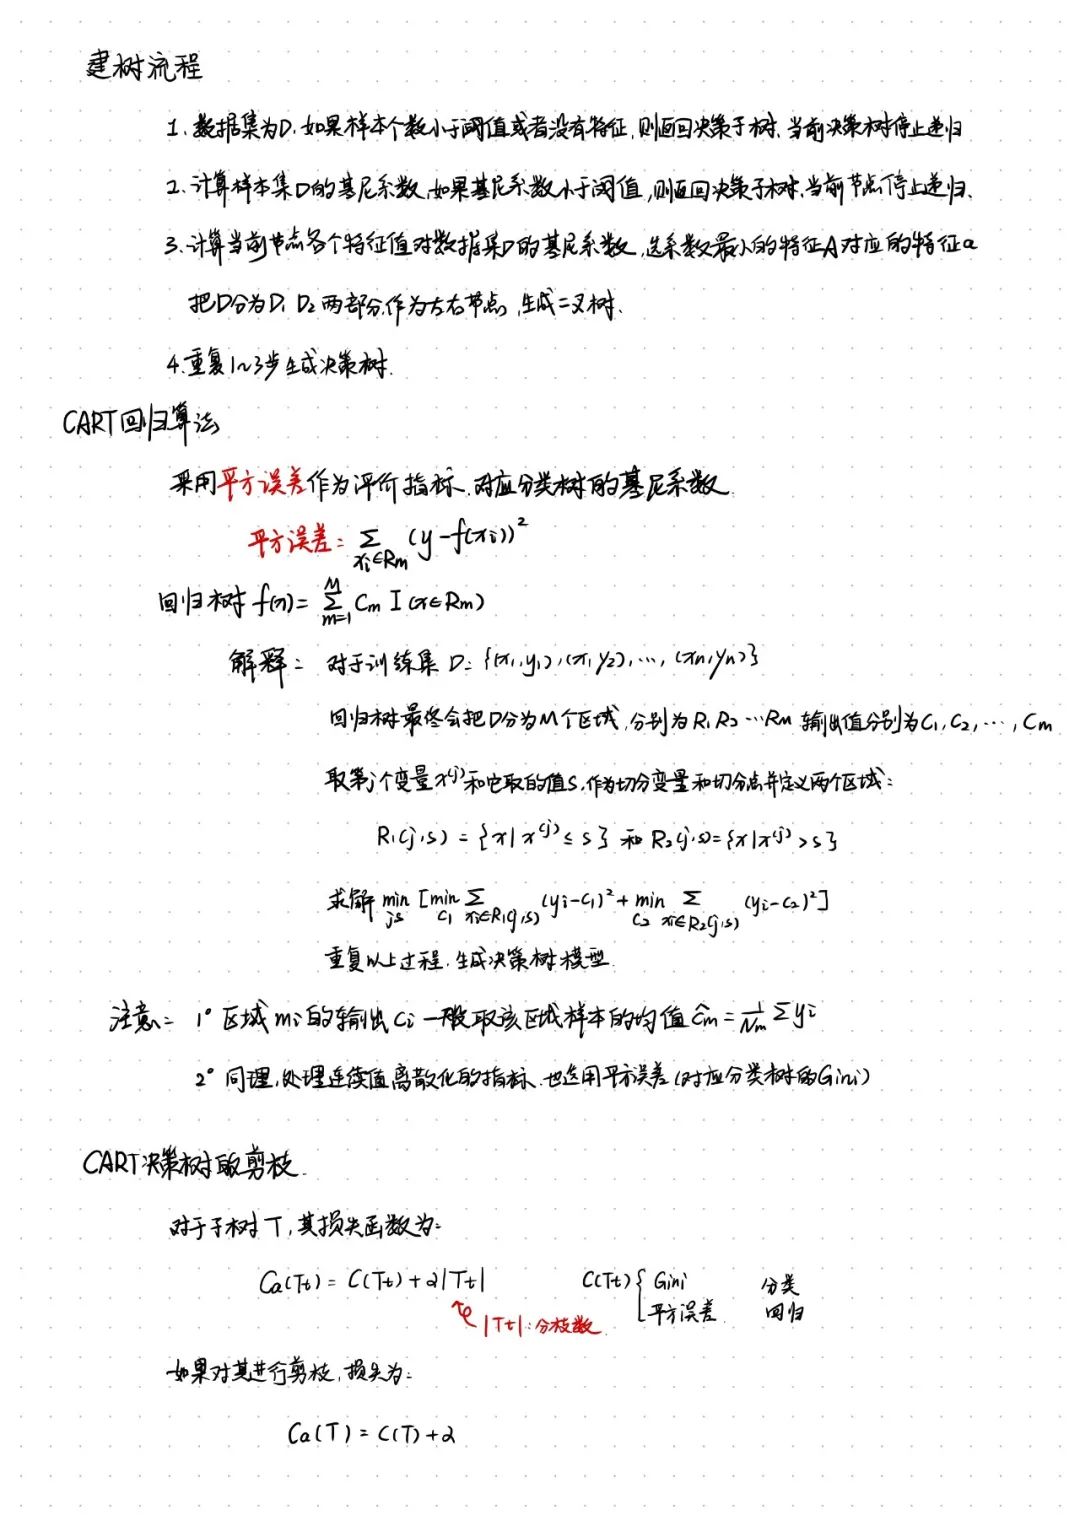 建树流程
1、数据集为D.如果样本个数小于阈值或者没有特征,则返回决策子树.当前决策树停止递归
2、计算样本集D的基尼系数,如果基尼系数小于阈值,则返回决策子树,当前节点停止递归.
3、计算当前节点各个特征值对数据集D的基尼系数,选系数最小的特征A对应的特征a
把D分为D1 D2两部分,作为左右节点,生成二叉树.
4.重复1~3步生成决策树.
CART回归算法
采用平方误差作为评价指标.对应分类树的基尼系数
平方误差: ∑_{xi∈Rm} (y-f(xi))²
回归树 f(x)= ∑_{m=1}^{M} Cm I(x∈Rm)
解释: 对于训练集 D={(x1,y1),(x1,y2),…,(xn,yn)}
回归树最终会把D分为M个区域,分别为R1 R2 … Rm 输出值分别为C1,C2,…,Cm
取第j个变量x^(j)和它取的值s,作为切分变量和切分点并定义两个区域:
R1(j,s)={x|x^(j)≤s} 和 R2(j,s)={x|x^(j)>s}
求解 min_{js} [min_{C1} ∑_{xi∈R1(j,s)} (yi-C1)² + min_{C2} ∑_{xi∈R2(j,s)} (yi-C2)²]
重复以上过程.生成决策树模型
注意: 1° 区域mi的输出Ci一般取该区域样本的均值 ĉm = 1/Nm ∑yi
2° 同理,处理连续值离散化的指标.也选用平方误差(对应分类树的Gini)
CART决策树的剪枝.
对于子树T,其损失函数为:
Ca(Tt)=C(Tt)+α|Tt| C(Tt){ Gini 分类
平方误差 回归
|Tt|:分枝数
如果对其进行剪枝,损失为:
Ca(T)=C(T)+α